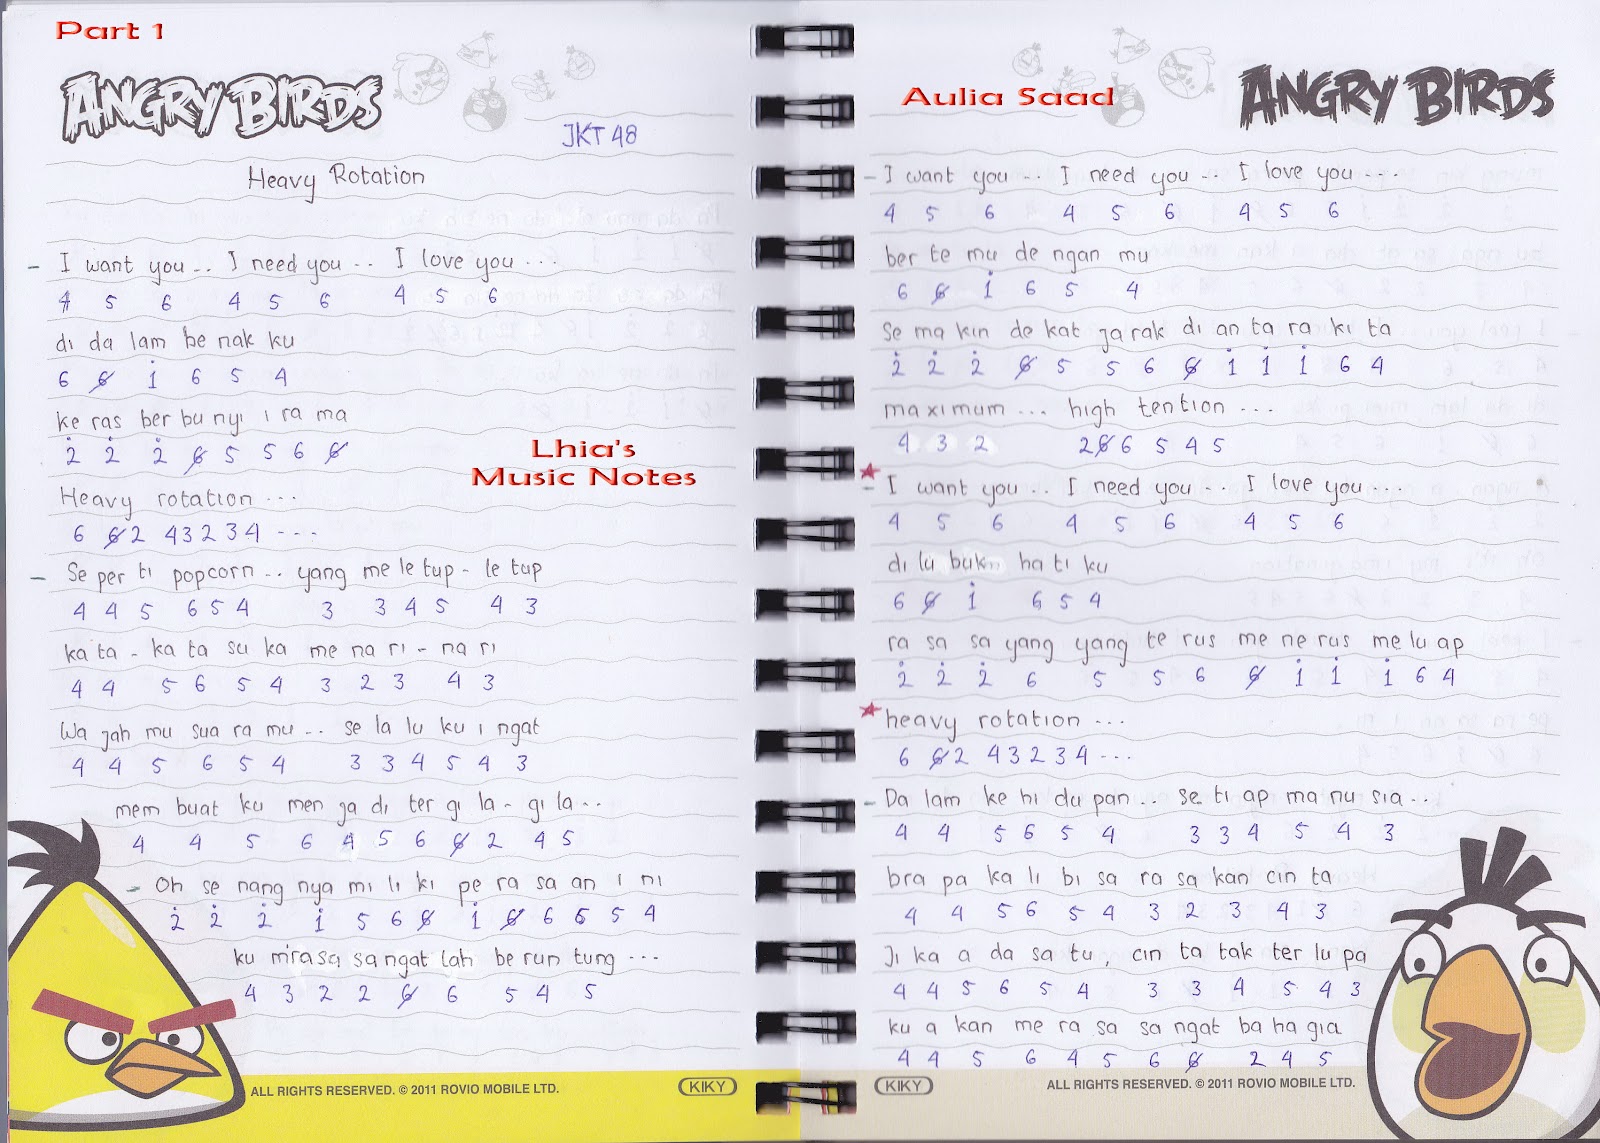 Part 1
ANGRY BIRDS
JKT 48
Heavy Rotation
- I want you .. I need you .. I love you ...
4 5 6 4 5 6 4 5 6
di da lam be nak ku
6 6̸ 1̇ 6 5 4
ke ras ber bu nyi i ra ma
2̇ 2̇ 2̇ 6̸ 5 5 6 6̸
Lhia's
Music Notes
Heavy rotation ...
6 6̸ 2 4 3 2 3 4 ...
- Se per ti popcorn .. yang me le tup - le tup
4 4 5 6 5 4 3 3 4 5 4 3
ka ta - ka ta su ka me na ri - na ri
4 4 5 6 5 4 3 2 3 4 3
Wa jah mu sua ra mu .. se la lu ku i ngat
4 4 5 6 5 4 3 3 4 5 4 3
mem buat ku men ja di ter gi la - gi la ..
4 4 5 6 4 5 6 6̸ 2 4 5
- Oh se nang nya mi li ki pe ra sa an i ni
2̇ 2̇ 2̇ 1̇ 5 6 6̸ 1̇ 6̸ 6 6 5 4
ku mrasa sangat lah be run tung ...
4 3 2 2 6̸ 6 5 4 5
ALL RIGHTS RESERVED. © 2011 ROVIO MOBILE LTD.
KIKY
Aulia Saad
ANGRY BIRDS
- I want you .. I need you .. I love you ...
4 5 6 4 5 6 4 5 6
ber te mu de ngan mu
6 6̸ 1̇ 6 5 4
Se ma kin de kat ja rak di an ta ra ki ta
2̇ 2̇ 2̇ 6̸ 5 5 6 6̸ 1̇ 1̇ 1̇ 6 4
maximum ... high tention ...
4 3 2 2 6̸ 6 5 4 5
- I want you .. I need you .. I love you ...
4 5 6 4 5 6 4 5 6
di lu bukn ha ti ku
6 6̸ 1̇ 6 5 4
ra sa sa yang yang te rus me ne rus me lu ap
2̇ 2̇ 2̇ 6 5 5 6 6̸ 1̇ 1̇ 1̇ 6 4
heavy rotation ...
6 6̸ 2 4 3 2 3 4 ...
- Da lam ke hi du pan .. se ti ap ma nu sia ..
4 4 5 6 5 4 3 3 4 5 4 3
bra pa ka li bi sa ra sa kan cin ta
4 4 5 6 5 4 3 2 3 4 3
Ji ka a da sa tu, cin ta tak ter lu pa
4 4 5 6 5 4 3 3 4 5 4 3
ku a kan me ra sa sa ngat ba ha gia
4 4 5 6 4 5 6 6̸ 2 4 5
KIKY
ALL RIGHTS RESERVED. © 2011 ROVIO MOBILE LTD.